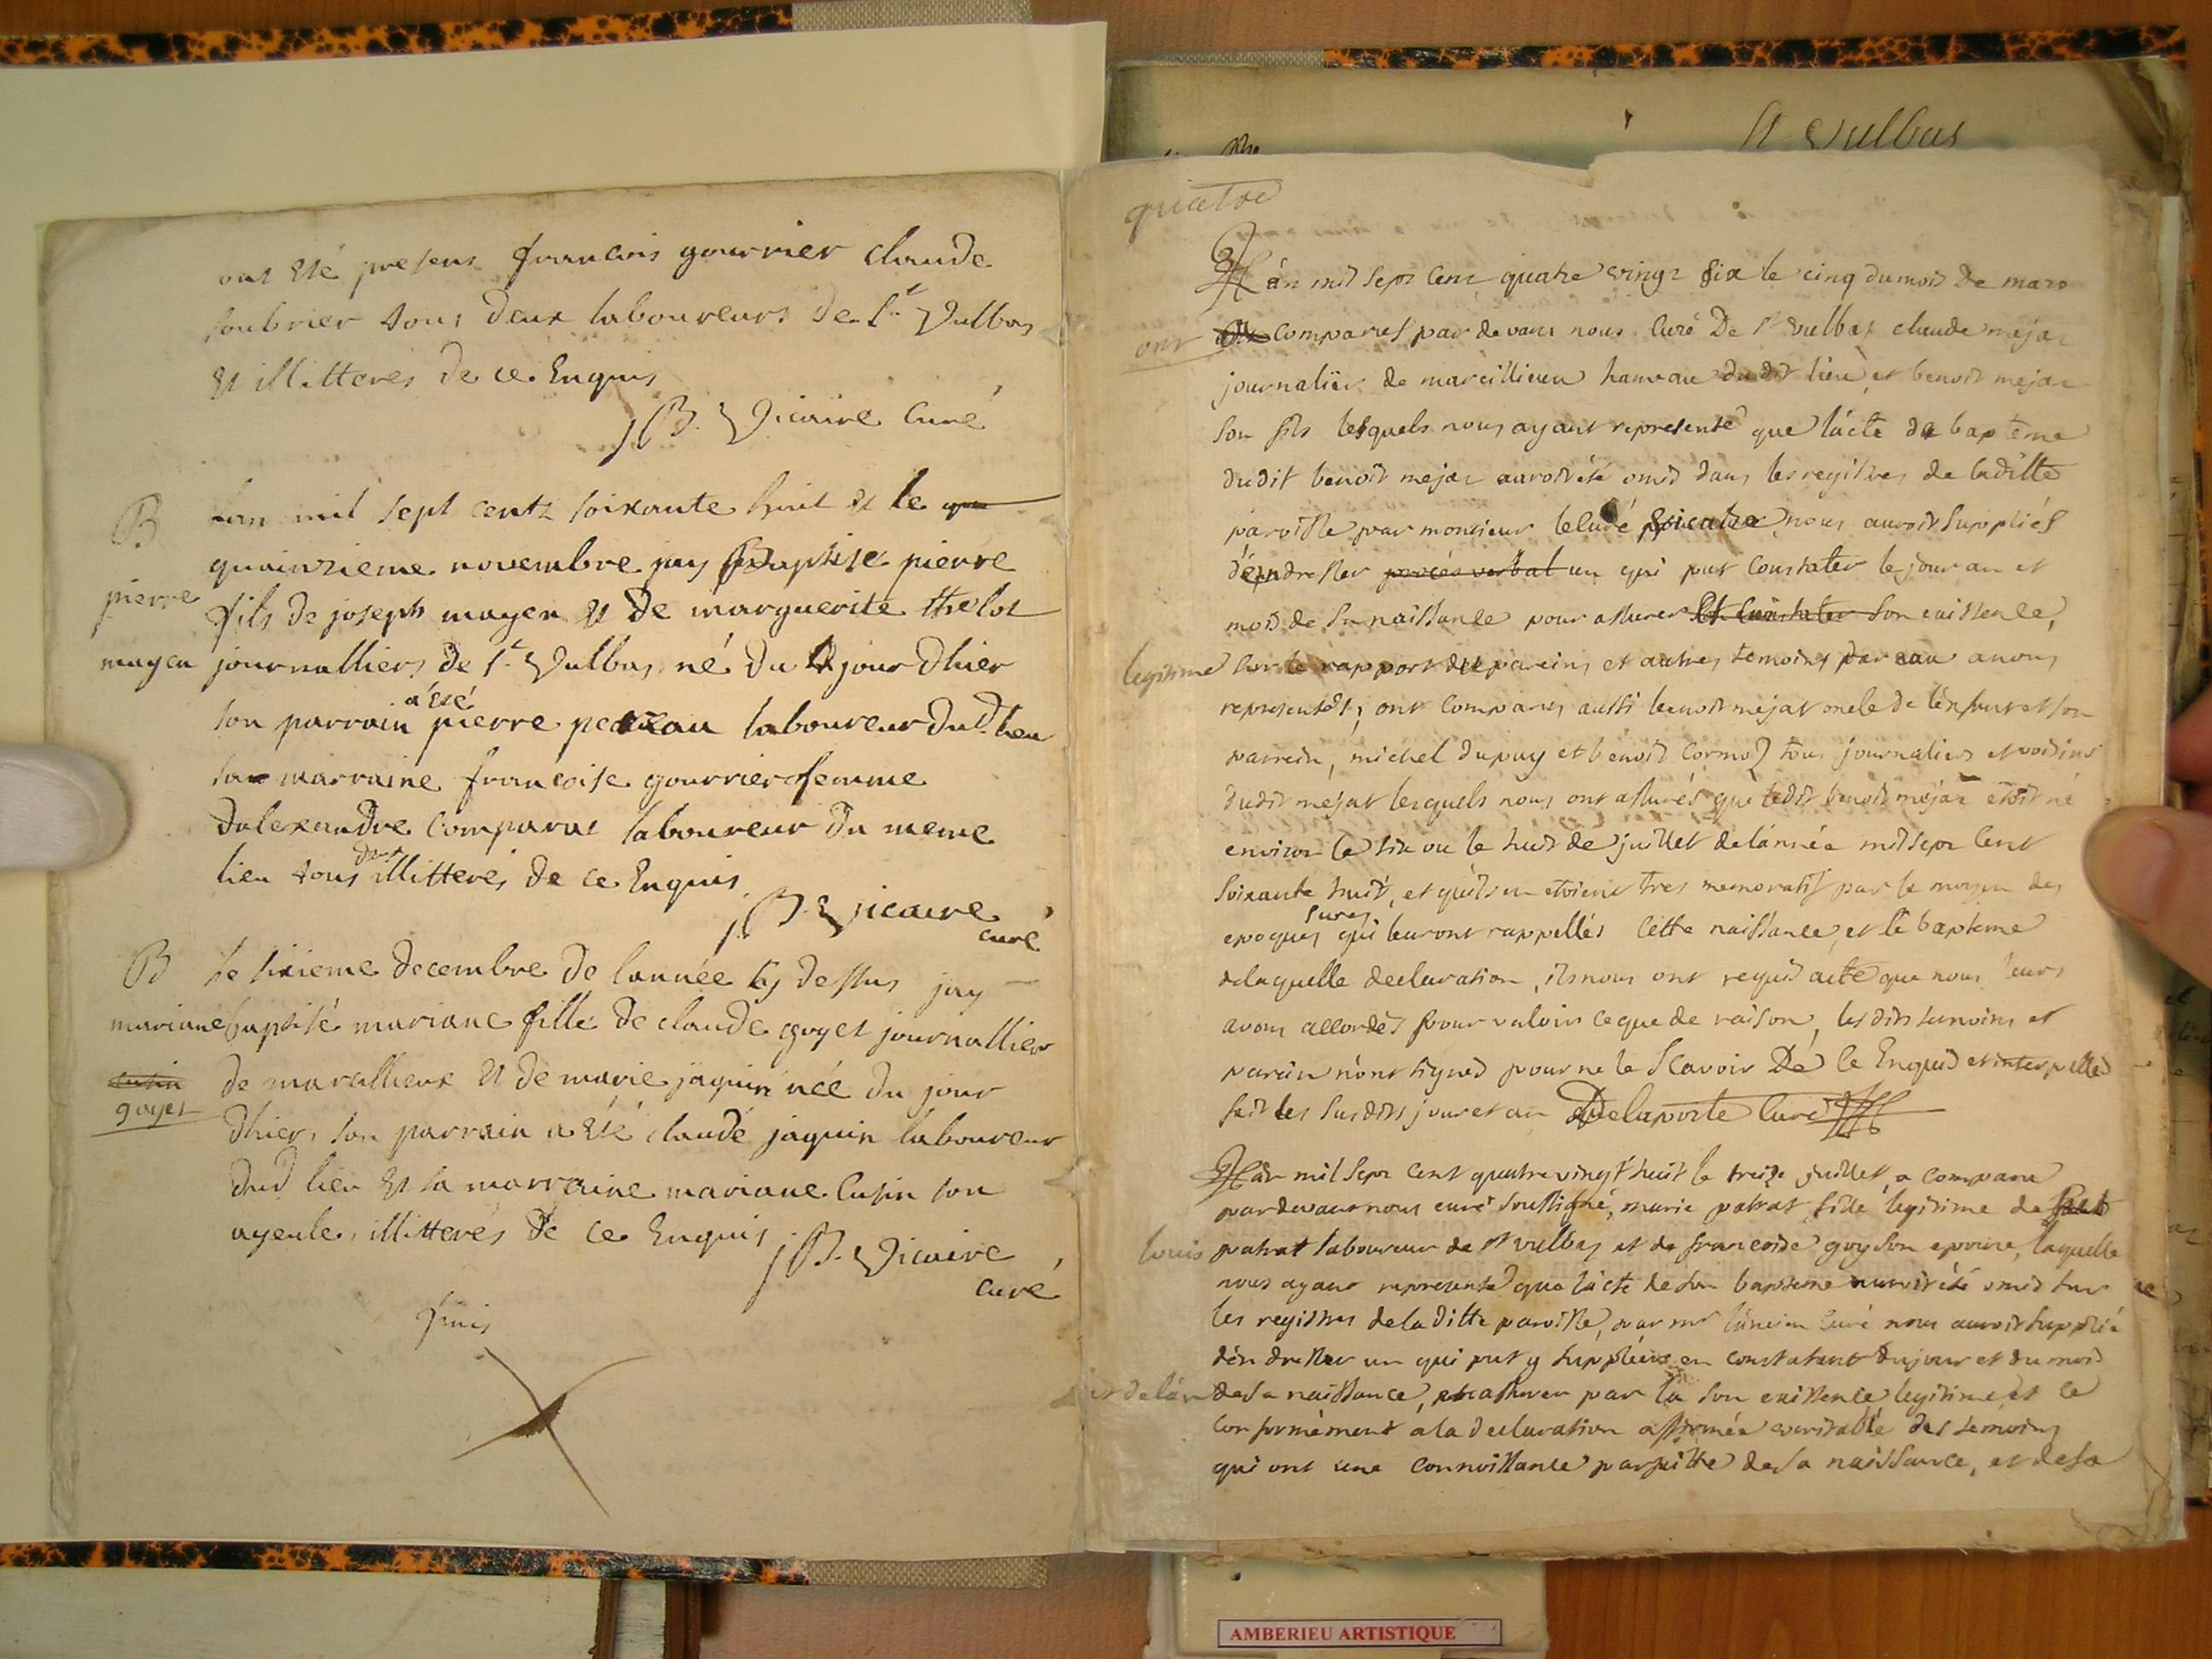 ont été presens francois gourrier claude
soubrier tous deux laboureurs de St Vulbas
et illitterés de ce Enquis
J B. Vicaire Curé
B
pierre
mayen
lan mil sept centz soixante huit & le
quainzieme novembre jay Baptisé pierre
fils de joseph mayen et de marguerite thelot
journalliers de St Vulbas né du jour dhier
a été
son parrain pierre laboureur dud. lieu
sa marraine francoise gourrier femme
dalexandre comparat laboureur du meme
deux
lieu tous illitterés de ce Enquis
J.B. Vicaire
curé
B
mariane
goyet
le sixieme decembre de lannée cy dessus jay
baptisé mariane fille de claude goyet journallier
de marallieux et de marie jaquin née du jour
dhier, son parrain a été claude jaquin laboureur
dud lieu et sa marraine mariane cusin son
ayeule, illitterés de ce Enquis
J B. Vicaire
curé
finis
St Vulbas
quatre
L'án mil sept cent quatre vingt six le cinq du mois de mars
ont
comparus par devant nous curé De st vulbas claude mejat
journalier de marcillieu hameau dudit lieu et benoit mejat
son fils lesquels nous ayant representé que l'acte de baptême
dudit benoit mejat auroit été omis dans les registres de laditte
paroisse par monsieur le Curé nous auroit suppliés
d'en dresser procès verbal un qui put constater le jour an et
mois de sa naissance pour assurer son existence,
legitime
sur le rapport des parrins et autres temoins par eux a nous
representés, ont comparus aussi benoit mejat oncle de l'enfant et son
parrein, michel dupuy et benoit cormoz tous journaliers et voisins
dudit mejat lesquels nous ont assurés que ledit benoit mejat etoit né
environ le six ou le huit de juillet de l'année mil sept cent
soixante huit, et qu'ils en etoient tres memoratifs par le moyen des
sures
epoques qui leur ont rappellés cette naissance, et le baptême
de laquelle declaration, ils nous ont requis acte que nous leurs
avons accordés pour valoir ce que de raison, les dits temoins et
parain n'ont signés pour ne le Scavoir De ce Enquis et interpellés
fait les susdits jour et an Delaporte curé
L'án mil sept cent quatre vingt huit le treize juillet, a comparu
par devant nous curé soussigné, marie patrat, fille legitime de
louis
patrat laboureur de st vulbas et de francoise goy son epouse, laquelle
nous ayant representé que l'acte de son baptême auroit été omis sur
les registres de la ditte paroisse, par mr l'ancien curé nous auroit supplié
d'en dresser un qui put y suppléer en constatant du jour et du mois
et de l'an
de sa naissance, et assurer par la son existence legitime, et ce
conformément a la declaration affirmée veritable des temoins
qui ont une connoissance parfaitte de sa naissance, et de sa
AMBERIEU ARTISTIQUE